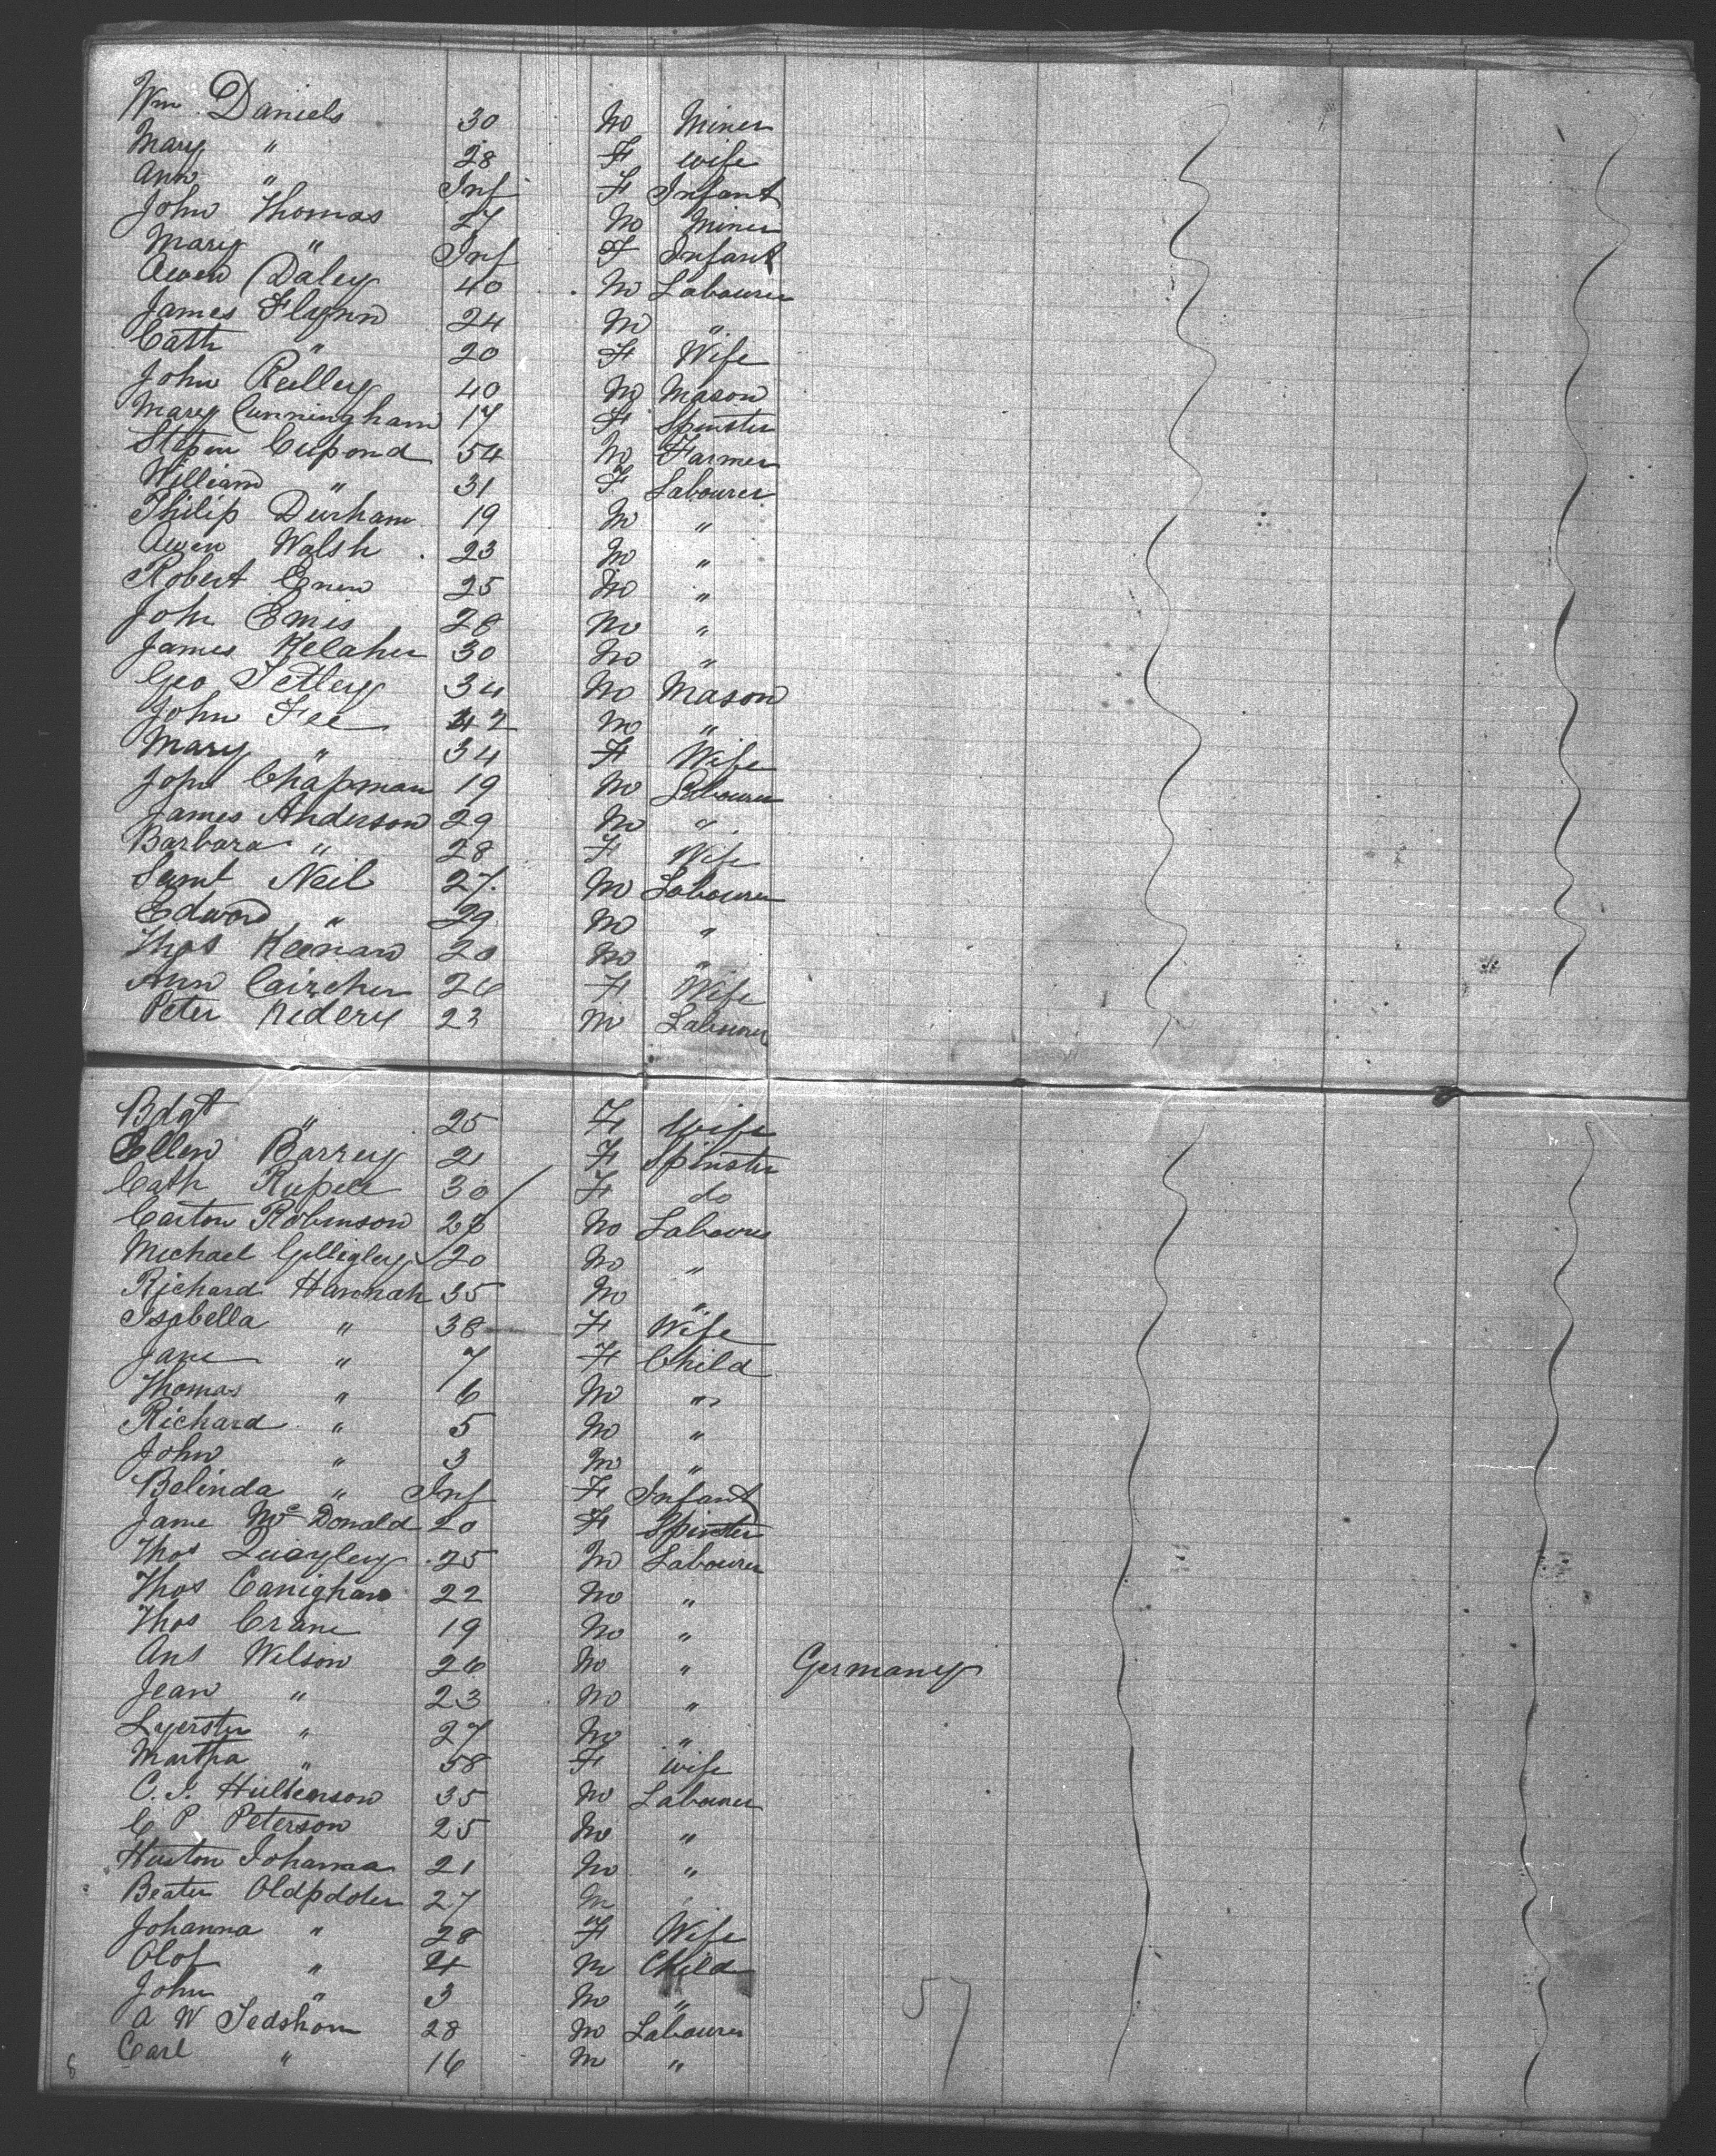 Wm Daniels 30 M Miner
Mary " 28 F Wife
Ann " Inf F Infant
John Thomas 27 M Miner
Mary " Inf F Infant
Owen Daley 40 M Labourer
James Flynn 24 M "
Cath " 20 F Wife
John Reilley 40 M Mason
Mary Cunningham 17 F Spinster
Stepen 54 M Farmer
William " 31 F Labourer
Philip Durham 19 M "
Owen Walsh 23 M "
Robert 25 M "
John Emis 28 M "
James Kelaher 30 M "
Geo Tetley 34 M Mason
John Fee 42 M "
Mary " 34 F Wife
John Chapman 19 M Labourer
James Anderson 29 M "
Barbara " 28 F Wife
Saml Neil 27 M Labourer
Edward " 29 M "
Thos Keenan 20 M "
Ann 26 F Wife
Peter 23 M Labourer
Bdgt " 25 F Wife
Ellen Barrey 21 F Spinster
Cath 30 F do
Robinson M Labourer
Michael Gilligley 20 M "
Richard Hannah 35 M "
Isabella " 38 F Wife
Jane " 7 F Child
Thomas " 6 M "
Richard " 5 M "
John " 3 M "
Belinda " Inf F Infant
Jane McDonald 20 F Spinster
Thos Quayley 25 M Labourer
Thos Canighan 22 M "
Thos Crane 19 M "
Ant Wilson 26 M " Germany
Jean " 23 M "
" 27 M "
Martha " 58 F Wife
35 M Labourer
C P Peterson 25 M "
Huston Johanna 21 M "
27 M "
Johanna " 28 F Wife
Olof " 4 M Child
John " 3 M "
A W Sedshom 28 M Labourer
Carl " 16 M "
57
8